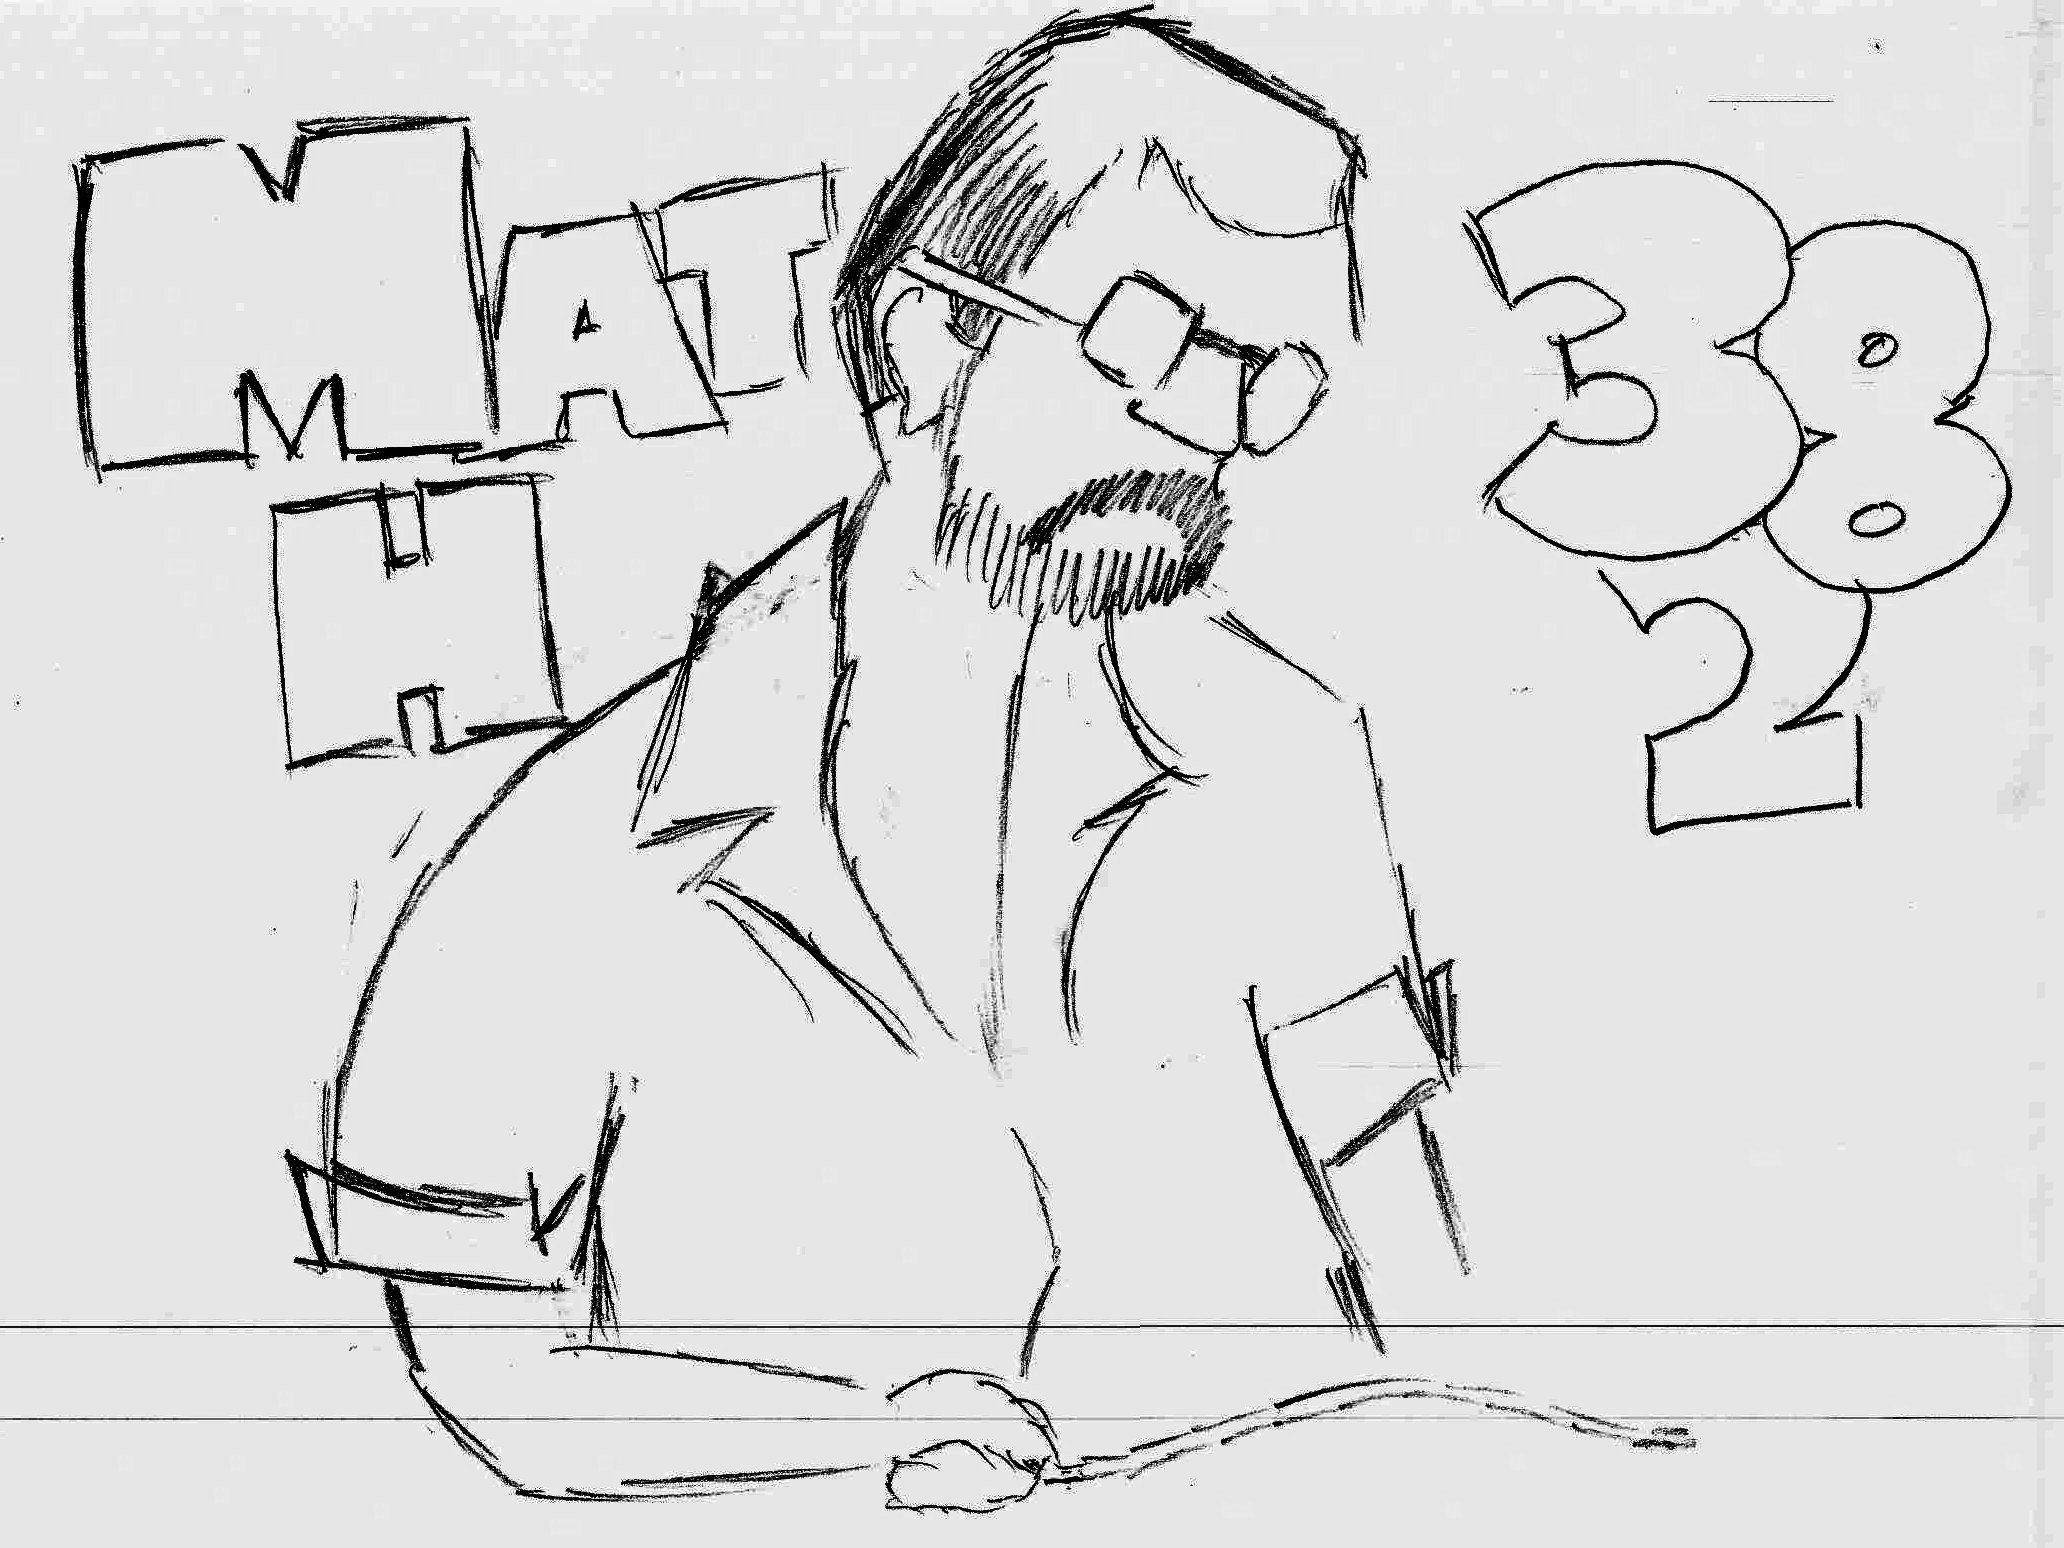 MAT
H
38
2